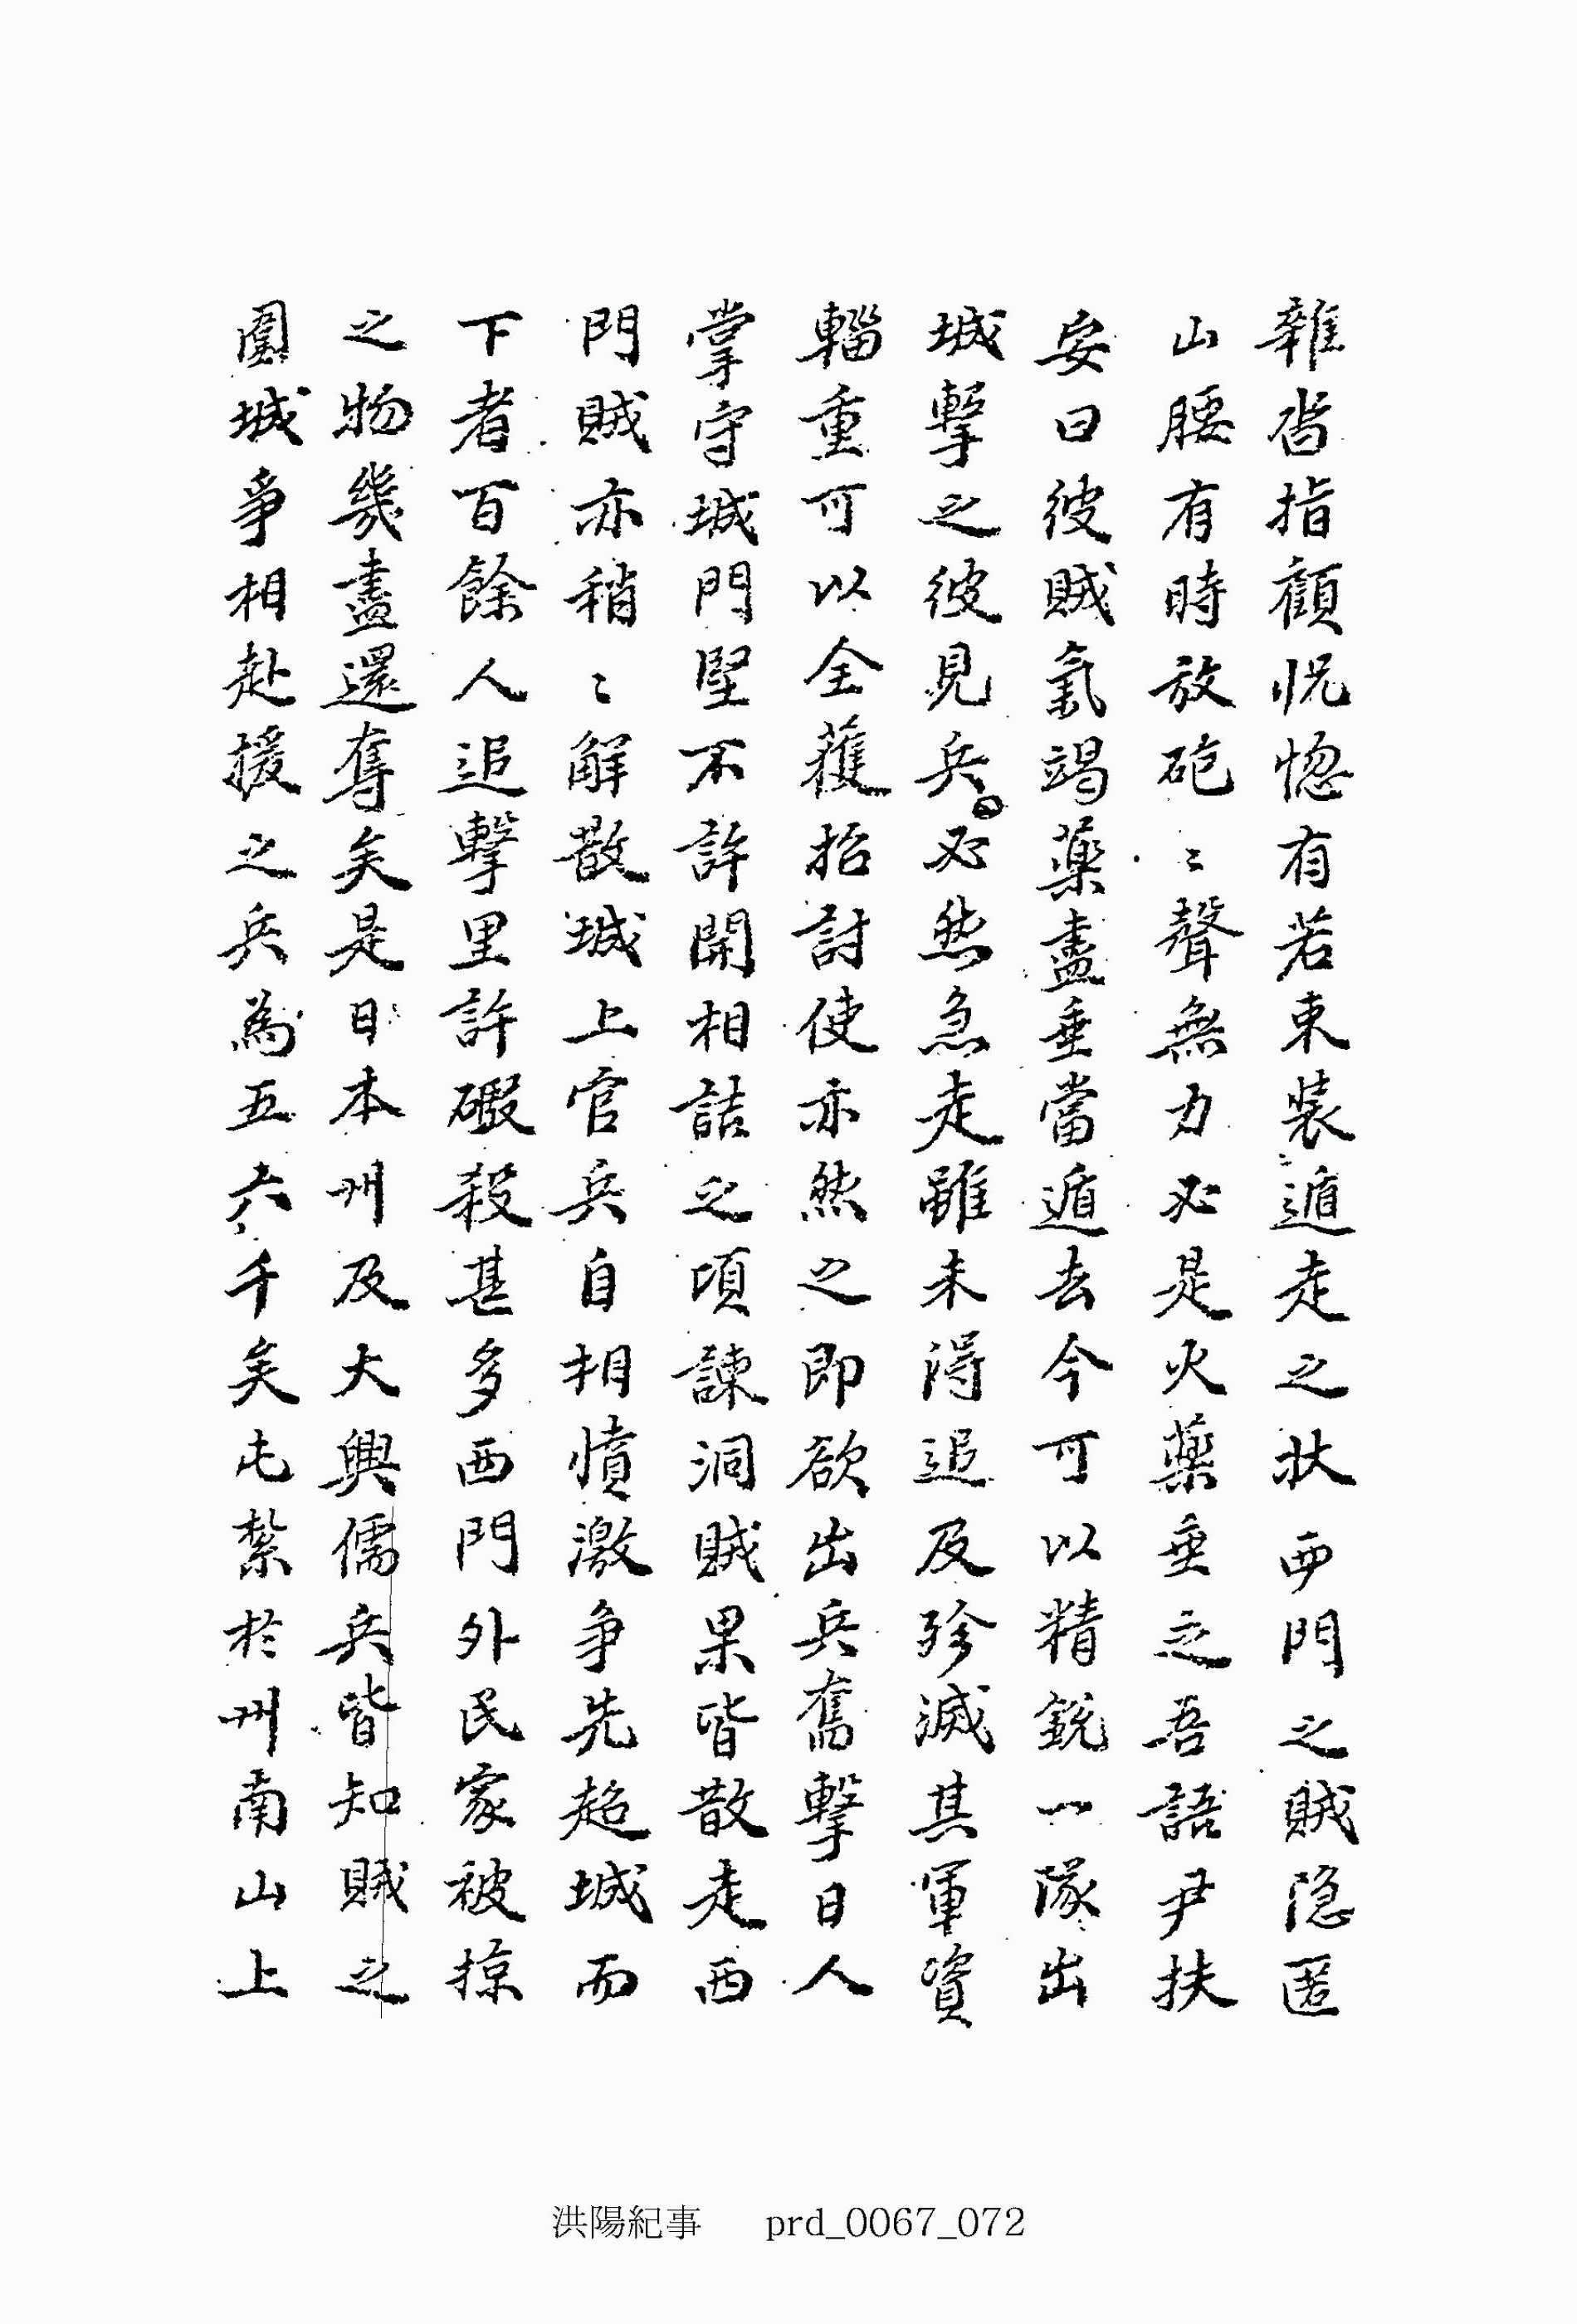 雜沓指顧怳惚有若束裝遁走之狀西門之賊隐匿
山腰有時放砲〻聲無力必是火藥垂之吾語尹扶
安曰彼賊氣竭藥盡垂當遁去今可以精銳一隊出
城擊之彼見兵必然急走雖未得追及殄滅其軍資
輜重可以全獲招討使亦然之即欲出兵奮擊日人
掌守城門堅不許開相詰之頃諫洞賊果皆散走西
門賊亦稍〻解散城上官兵自相憤激爭先超城而
下者百餘人追擊里許碬殺甚多西門外民家被掠
之物幾盡還奪矣是日本州及大興儒兵皆知賊之
圍城爭相赴援之兵為五六千矣屯紮於州南山上
洪陽紀事 prd_0067_072